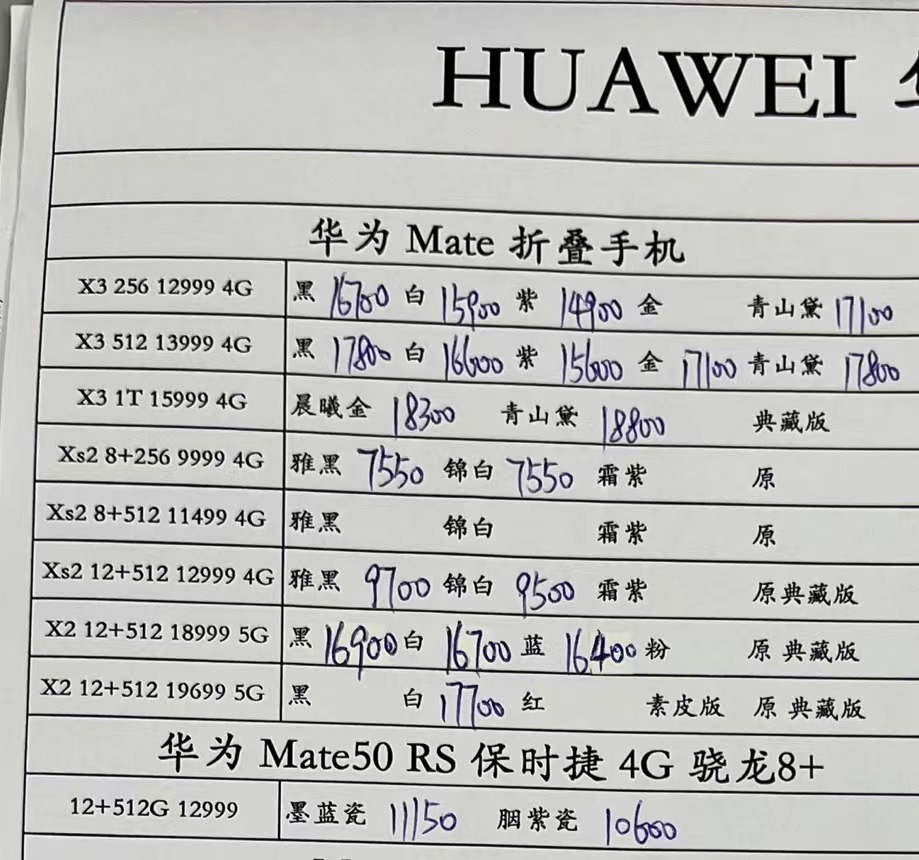 HUAWEI
华为 Mate 折叠手机
X3 256 12999 4G 黑 16700 白 15900 紫 14900 金 青山黛 17100
X3 512 13999 4G 黑 17800 白 16600 紫 15600 金 17100 青山黛 17800
X3 1T 15999 4G 晨曦金 18300 青山黛 18800 典藏版
Xs2 8+256 9999 4G 雅黑 7550 锦白 7550 霜紫 原
Xs2 8+512 11499 4G 雅黑 锦白 霜紫 原
Xs2 12+512 12999 4G 雅黑 9700 锦白 9500 霜紫 原典藏版
X2 12+512 18999 5G 黑 16900 白 16700 蓝 16400 粉 原 典藏版
X2 12+512 19699 5G 黑 白 17700 红 素皮版 原 典藏版
华为 Mate50 RS 保时捷 4G 骁龙8+
12+512G 12999 墨蓝瓷 11150 胭紫瓷 10600